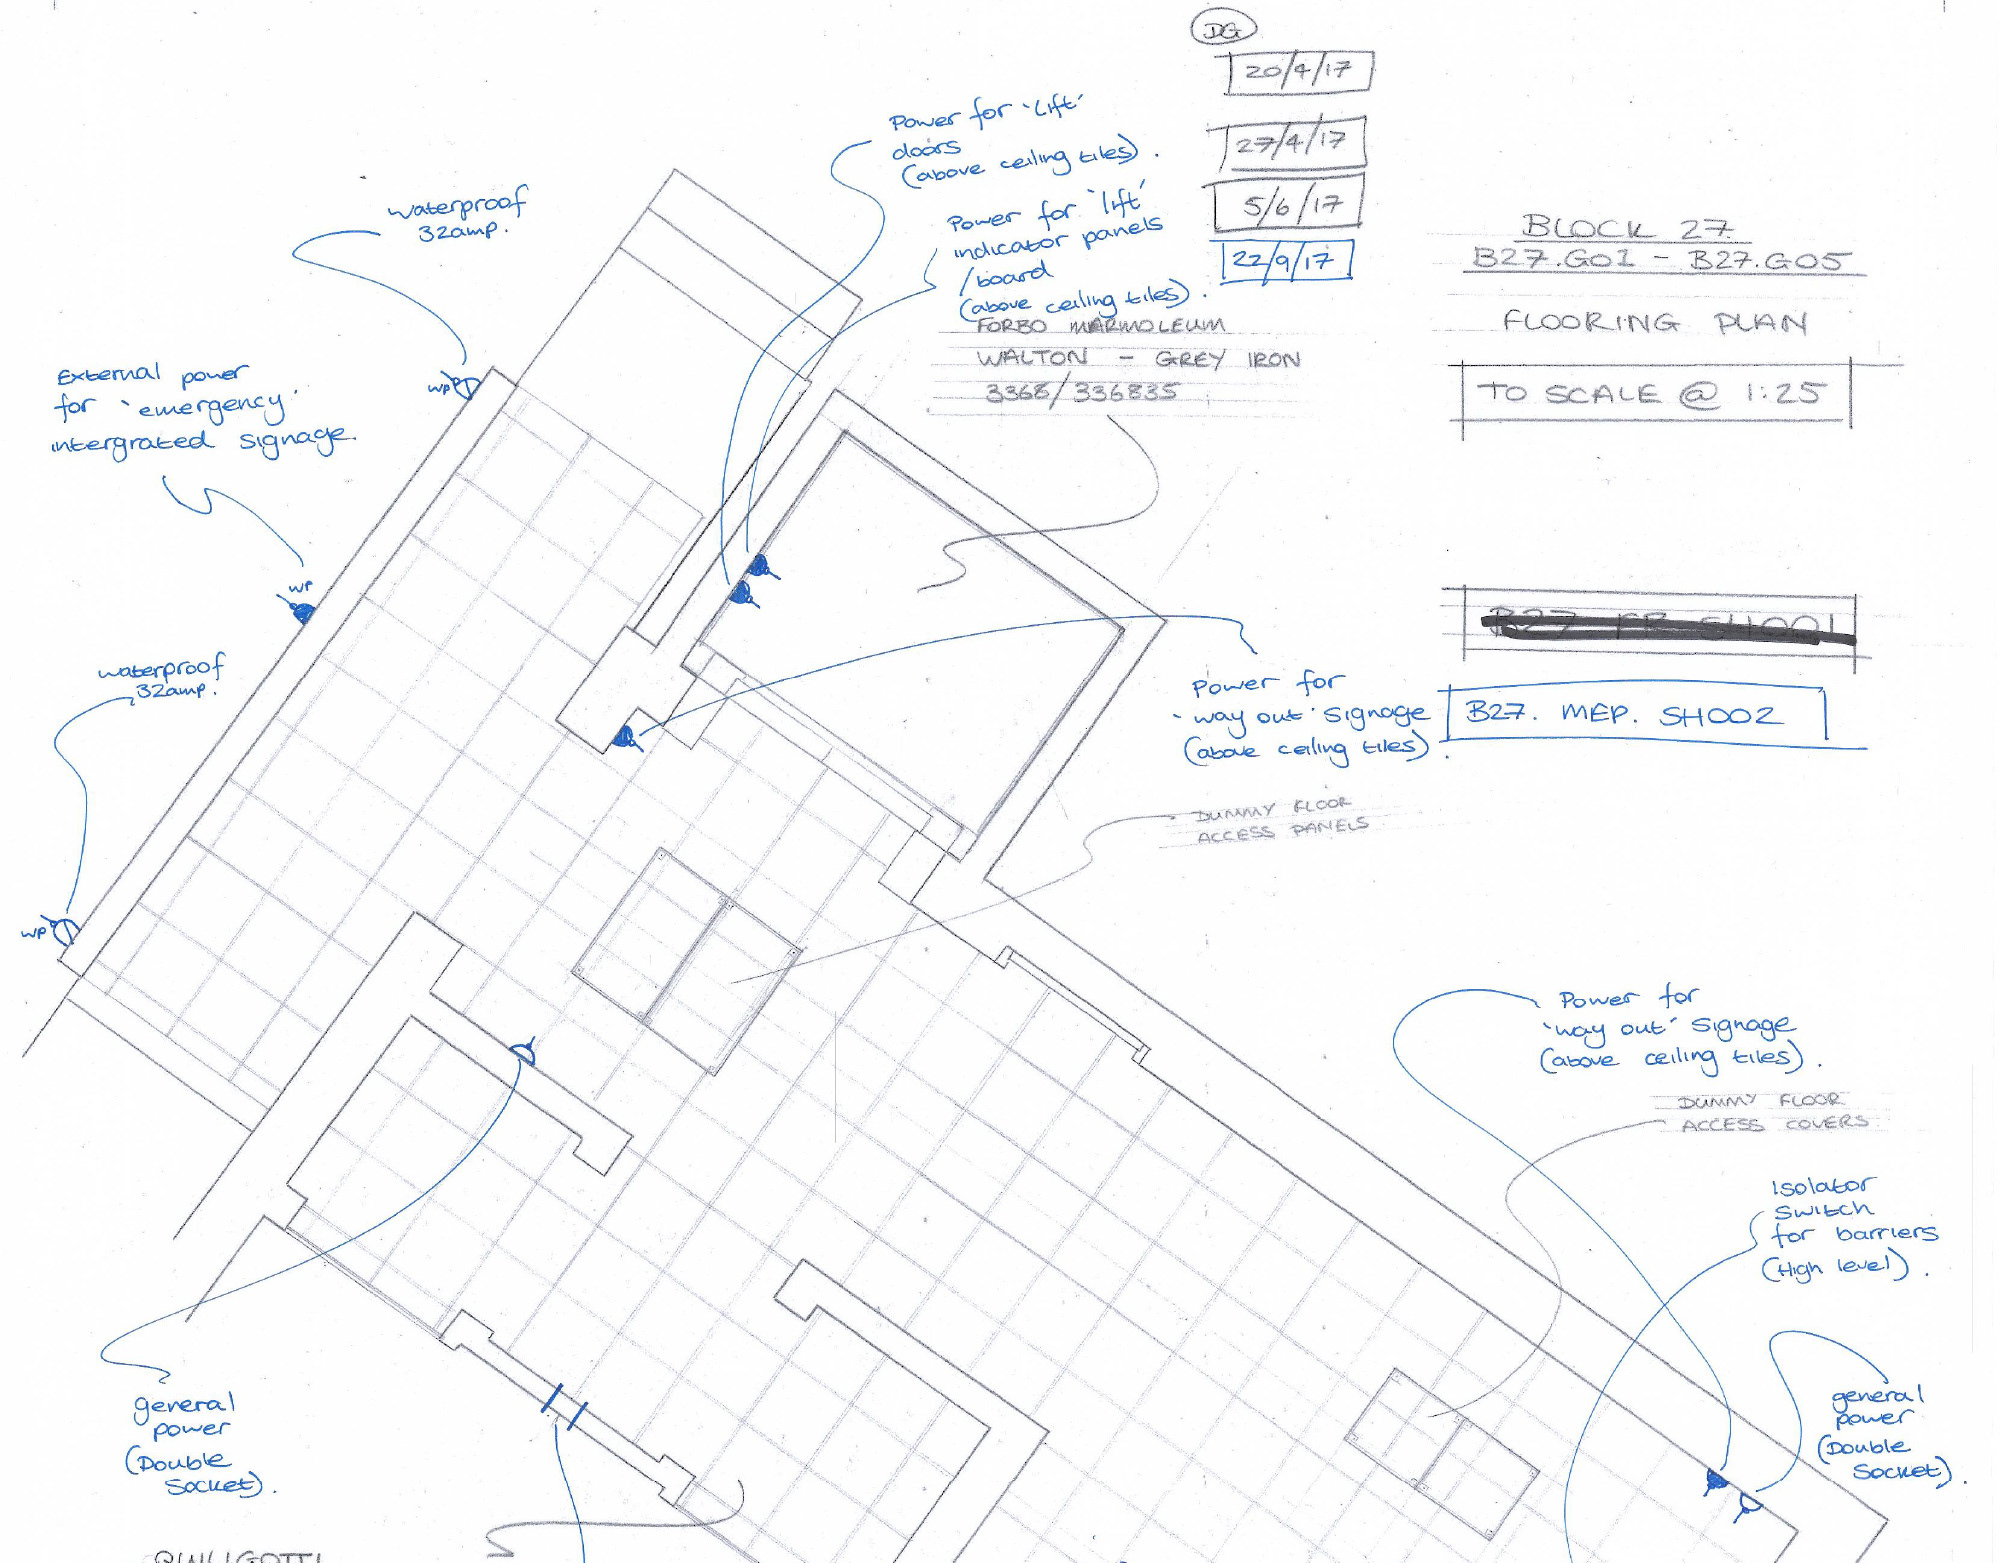 DG
20/4/17
27/4/17
5/6/17
22/9/17
BLOCK 27
B27.G01 - B27.G05
FLOORING PLAN
TO SCALE @ 1:25
B27 FP SH001
B27. MEP. SH002
Power for 'Lift'
doors
(above ceiling tiles).
Power for 'lift'
indicator panels
/board
(above ceiling tiles).
FORBO MARMOLEUM
WALTON - GREY IRON
3368/336835
waterproof
32amp.
WP
External power
for 'emergency'
intergrated signage.
WP
waterproof
32amp.
WP
Power for
'way out' signage
(above ceiling tiles).
DUMMY FLOOR
ACCESS PANELS
Power for
'way out' signage
(above ceiling tiles).
DUMMY FLOOR
ACCESS COVERS
Isolator
switch
for barriers
(High level).
general
power
(Double
Socket).
general
power
(Double
Socket).